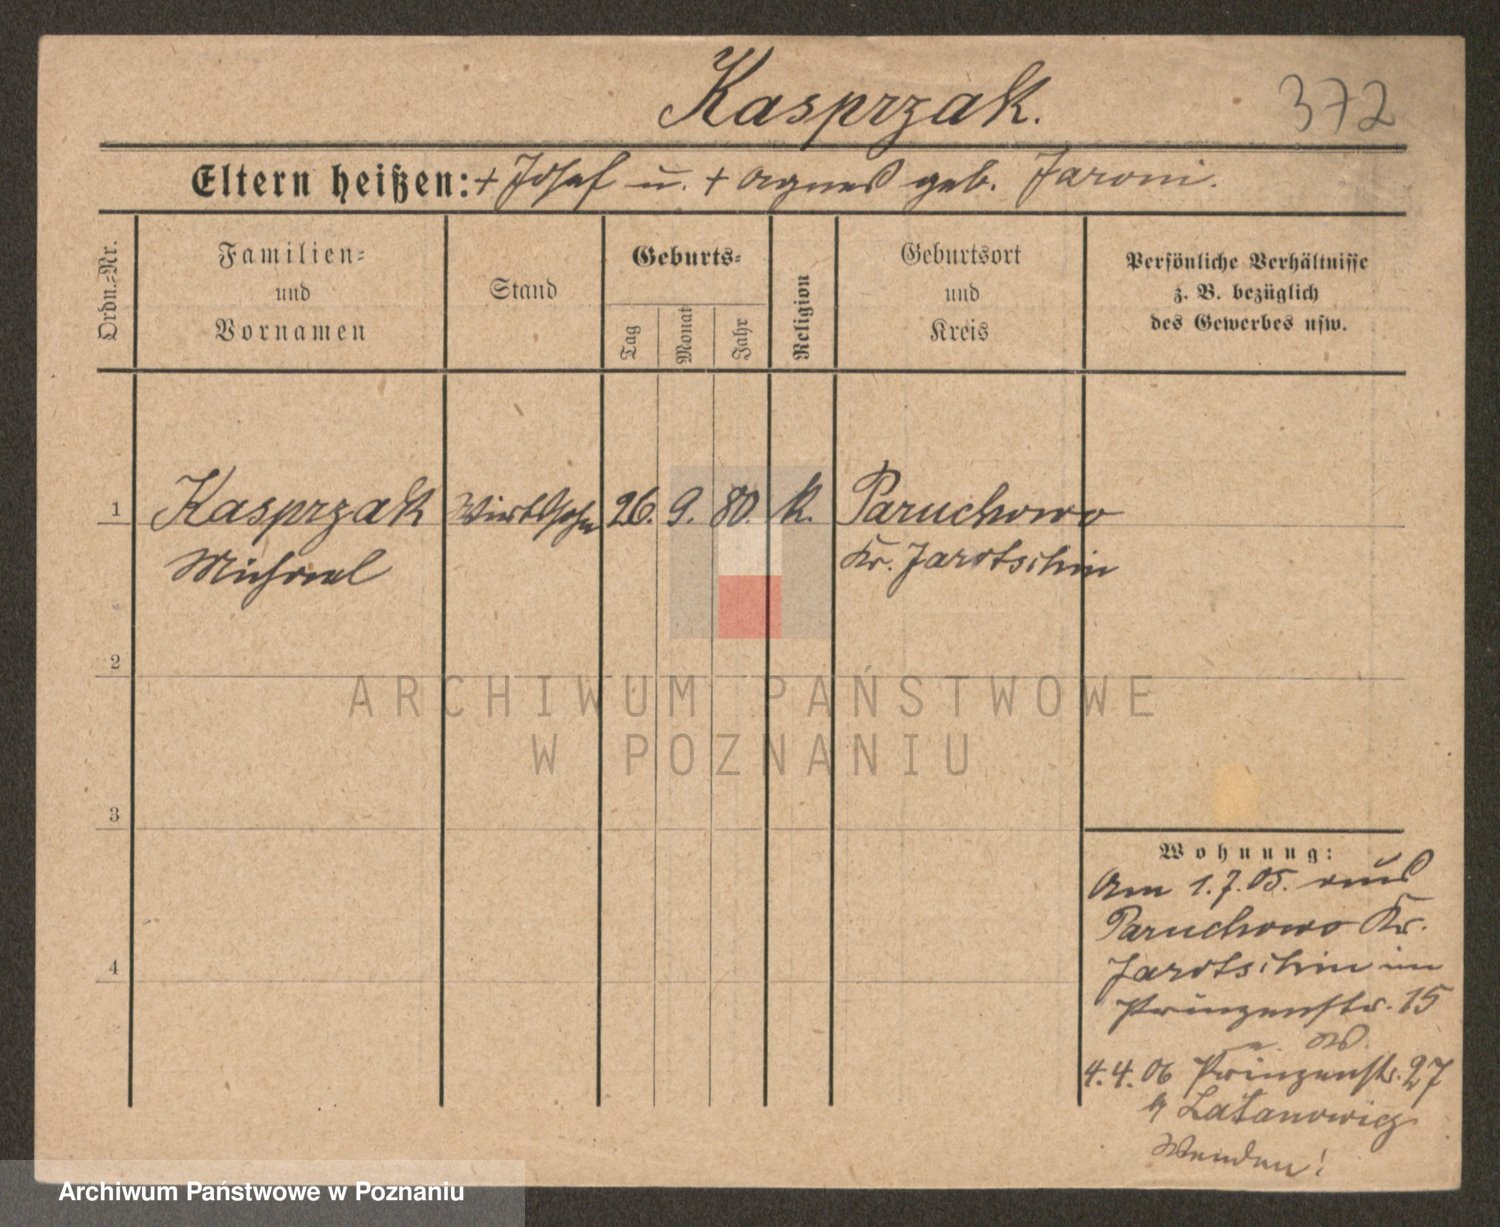 Kasprzak.
372
Eltern heißen: + Josef u. + Agnes geb. Jaroni.
Ordn.-Nr.
Familien-
und
Vornamen
Stand
Geburts-
Tag
Monat
Jahr
Religion
Geburtsort
und
Kreis
Persönliche Verhältnisse
z. B. bezüglich
des Gewerbes usw.
1 Kasprzak Wirtssohn 26. 9. 80. k. Paruchowo
Michael Kr. Jarotschin
2
ARCHIWUM PAŃSTWOWE
W POZNANIU
3
Wohnung:
Am 1.7.05. aus
Paruchowo Kr.
Jarotschin in
Prinzenstr. 15
4
4.4.06 Prinzenstr. 27
Latanowicz
Wenden!
Archiwum Państwowe w Poznaniu